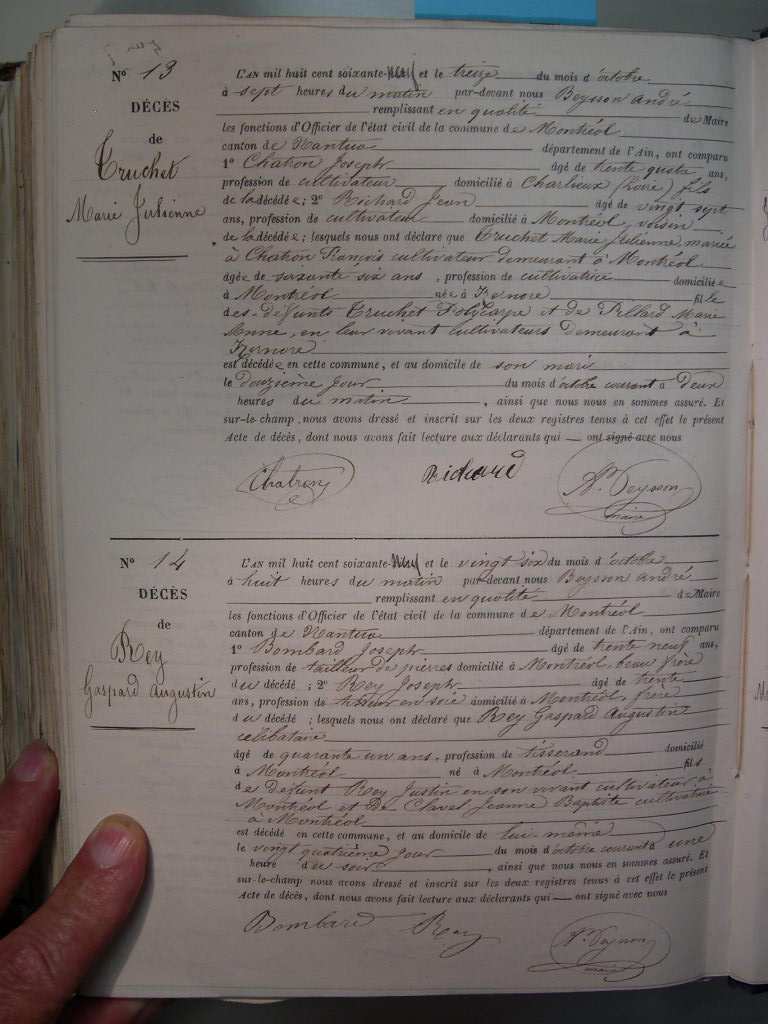 N° 13
DÉCÈS
de
Truchet
Marie Julienne
L'AN mil huit cent soixante-neuf et le treize du mois d'octobre
à sept heures du matin par-devant nous Beysson André
remplissant en qualité de Maire
les fonctions d'Officier de l'état civil de la commune de Montréol
canton de Nantua département de l'Ain, ont comparu
1° Chatron Joseph âgé de trente quatre ans,
profession de cultivateur domicilié à Charlieux (Loire) fils
de la décédée; 2° Richard Jean âgé de vingt sept
ans, profession de cultivateur domicilié à Montréol, voisin
de la décédée; lesquels nous ont déclaré que Truchet Marie Julienne, mariée
à Chatron François cultivateur demeurant à Montréol
âgée de soixante six ans, profession de cultivatrice domiciliée
à Montréol née à fille
des défunts Truchet Polycarpe et de Pillard Marie
Anne, en leur vivant cultivateurs demeurant à
est décédée en cette commune, et au domicile de son mari
le douzième jour du mois d'octobre courant à deux
heures du matin, ainsi que nous nous en sommes assuré. Et
sur-le-champ, nous avons dressé et inscrit sur les deux registres tenus à cet effet le présent
Acte de décès, dont nous avons fait lecture aux déclarants qui — ont signé avec nous
Chatron Richard A. Beysson
maire
N° 14
DÉCÈS
de
Rey
Gaspard Augustin
L'AN mil huit cent soixante-neuf et le vingt six du mois d'octobre
à huit heures du matin par-devant nous Beysson André
remplissant en qualité de Maire
les fonctions d'Officier de l'état civil de la commune de Montréol
canton de Nantua département de l'Ain, ont comparu
1° Bombard Joseph âgé de trente neuf ans,
profession de tailleur de pierres domicilié à Montréol, beau frère
du décédé; 2° Rey Joseph âgé de trente
ans, profession de tisseur en soie domicilié à Montréol, frère
du décédé; lesquels nous ont déclaré que Rey Gaspard Augustin
célibataire
âgé de quarante un ans, profession de tisserand domicilié
à Montréol né à Montréol fils
de défunt Rey Justin en son vivant cultivateur à
Montréol et de Clavel Jeanne Baptiste cultivatrice
à Montréol
est décédé en cette commune, et au domicile de lui-même
le vingt quatrième jour du mois d'octobre courant à une
heure du soir, ainsi que nous nous en sommes assuré. Et
sur-le-champ nous avons dressé et inscrit sur les deux registres tenus à cet effet le présent
Acte de décès, dont nous avons fait lecture aux déclarants qui — ont signé avec nous
Bombard Rey A. Beysson
maire